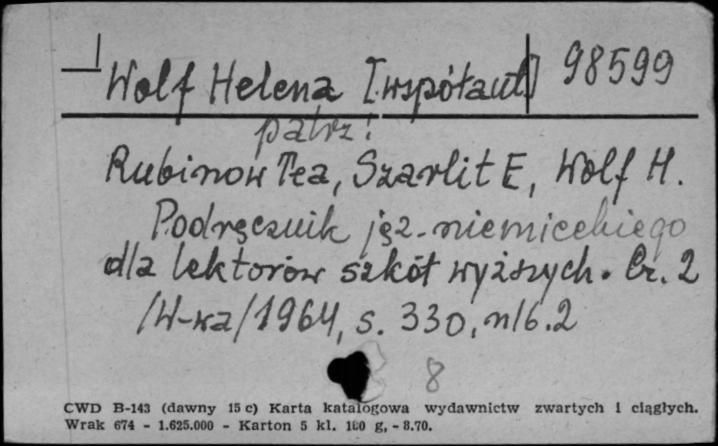 Wolf Helena [współaut.] 98599
patrz:
Rubinow Tea, Szarlit E, Wolf H.
Podręcznik jęz. niemieckiego
dla lektorów szkół wyższych. Cz. 2
/W-wa/1964, s. 330, nlb. 2
8
CWD B-143 (dawny 15 c) Karta katalogowa wydawnictw zwartych i ciągłych.
Wrak 674 - 1.625.000 - Karton 5 kl. 180 g, - 8.70.